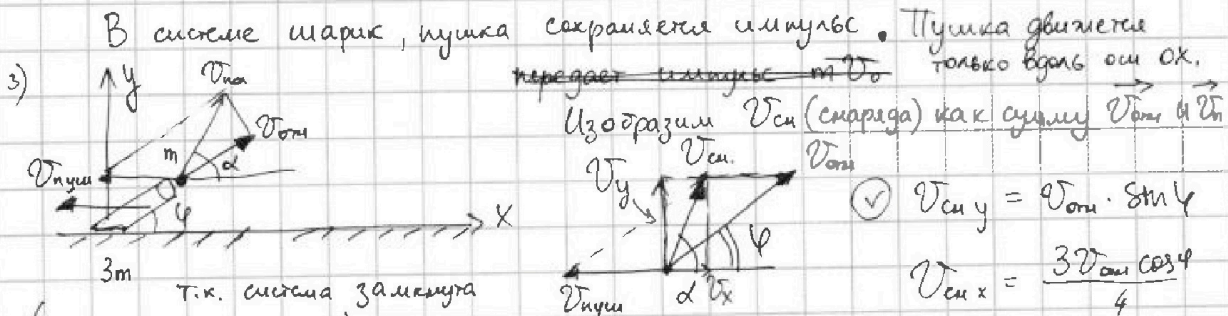 В системе шарик, пушка сохраняется импульс. Пушка движется
только вдоль оси OX.
передает импульс m V₀
3)
y
Vпа
Vотн
m
α
Vпуш
φ
X
3m
т.к. система замкнута
Изобразим Vсн (снаряда) как сумму Vотн и Vп
Vy
Vсн.
Vотн
φ
Vпуш
α
Vx
Vсн y = Vотн · Sin φ
Vсн x = 3Vотн cos φ / 4